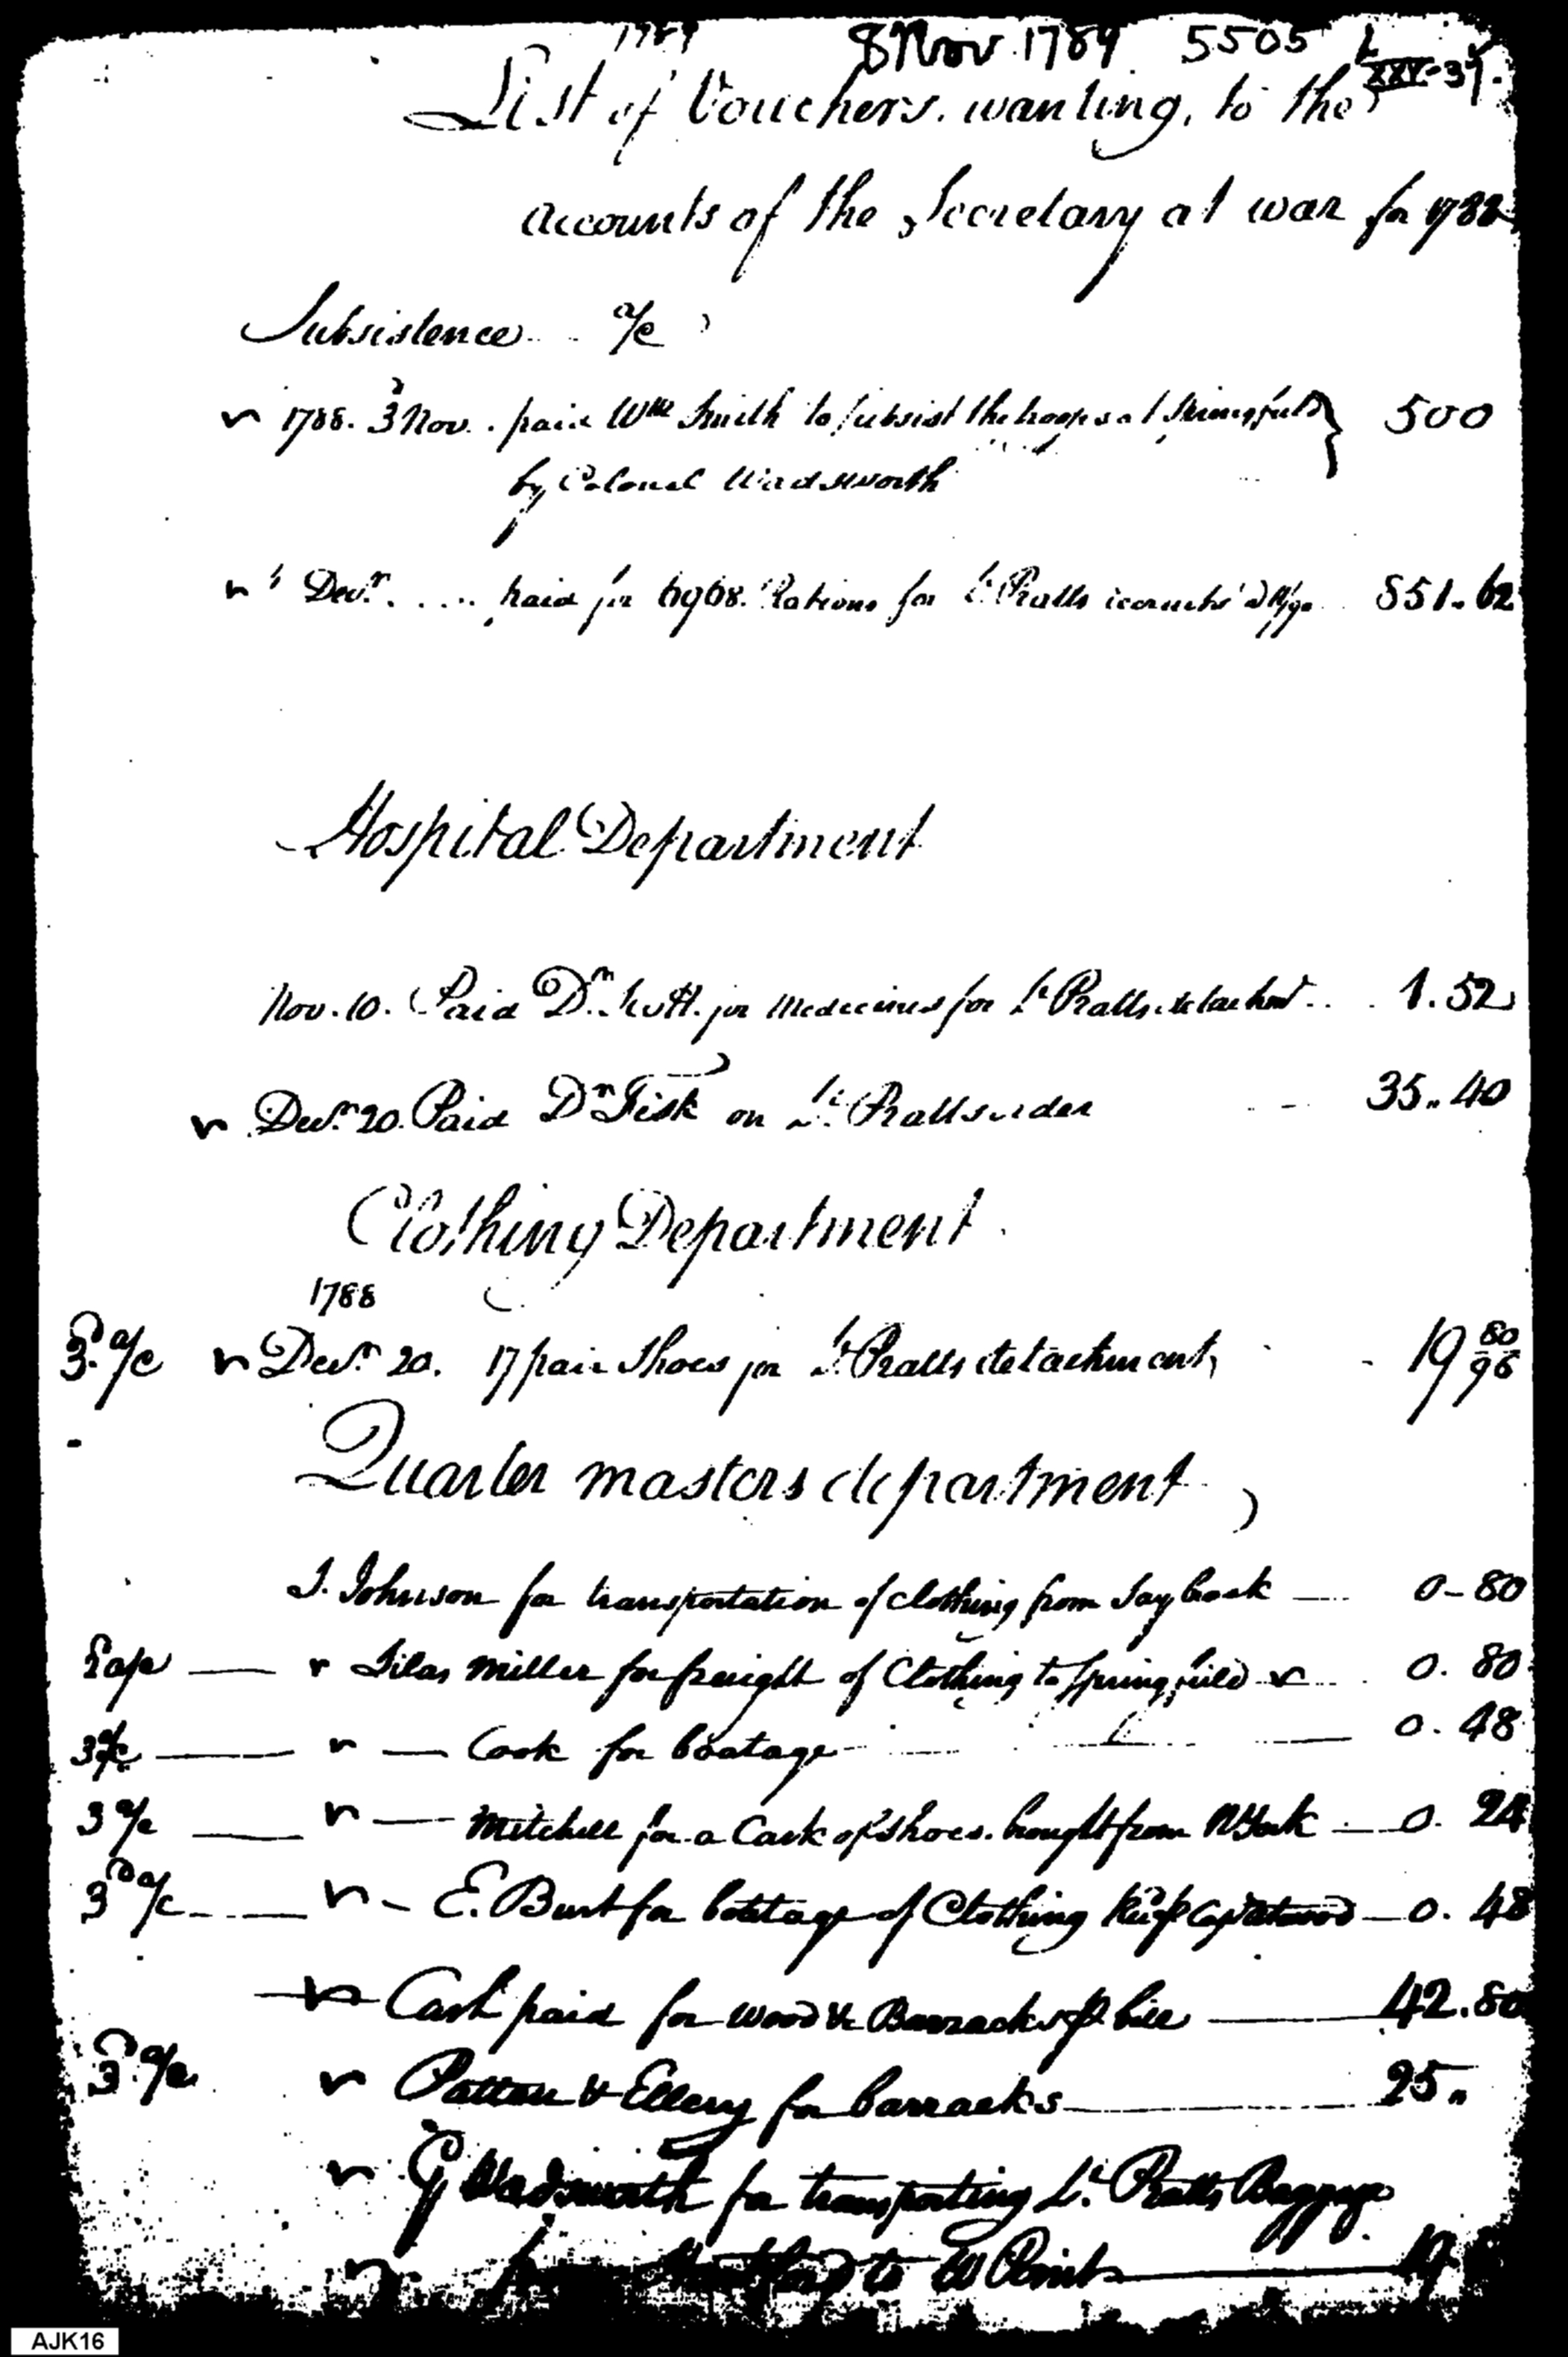 1789
8 Nov 1789 5505
List of Vouchers wanting, to the
accounts of the Secretary at war for 1788
Subsistence a/c
1788. 3 Nov. paid Wm Smith to subsist the troops at Springfield } 500
by Colonel Wadsworth
Decr. .... paid for 6968. Rations for Lt Pratts recruits 851.62
Hospital Department
Nov. 10. Paid Dr. for Medecines for Lt Pratts detachmt .. 1.52
Decr. 20. Paid Dr Fisk on Lt. Pratts order - 35.. 40
Clothing Department
1788
3d. a/c Decr. 20. 17 pair Shoes for Lt Pratts detachment, - 19 80/96
Quarter masters department
J. Johnson for transportation of clothing from Say brook — 0-80
— Silas Miller for freight of Clothing to Springfield 0. 80
3 a/c — — Cook for boatage — 0. 48
3 a/c — — Mitchell for a Cask of Shoes. brought from N York — 0. 24
3d a/c — - E. Burt for boatage of Clothing — 0. 48
Cash paid for wood & Barracks bill — 42.80
3d a/c. Patten & Ellery for barracks — 25..
Wadsworth for transporting Lt. Pratts Baggage
to W Point —
AJK16